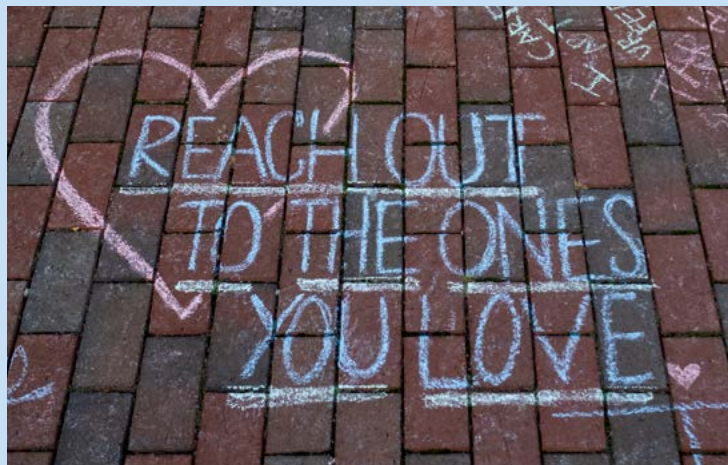 REACH OUT
TO THE ONES
YOU LOVE